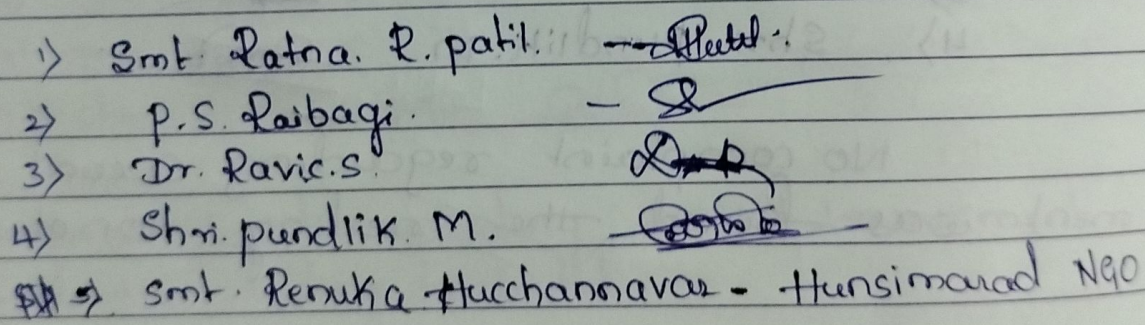 1) Smt. Ratna. R. patil. -
2) P.S. Raibagi. -
3) Dr. Ravic.s.
4) Shri. pundlik. M. -
=> Smt. Renuka Hucchannavar - Hunsimarad NGO